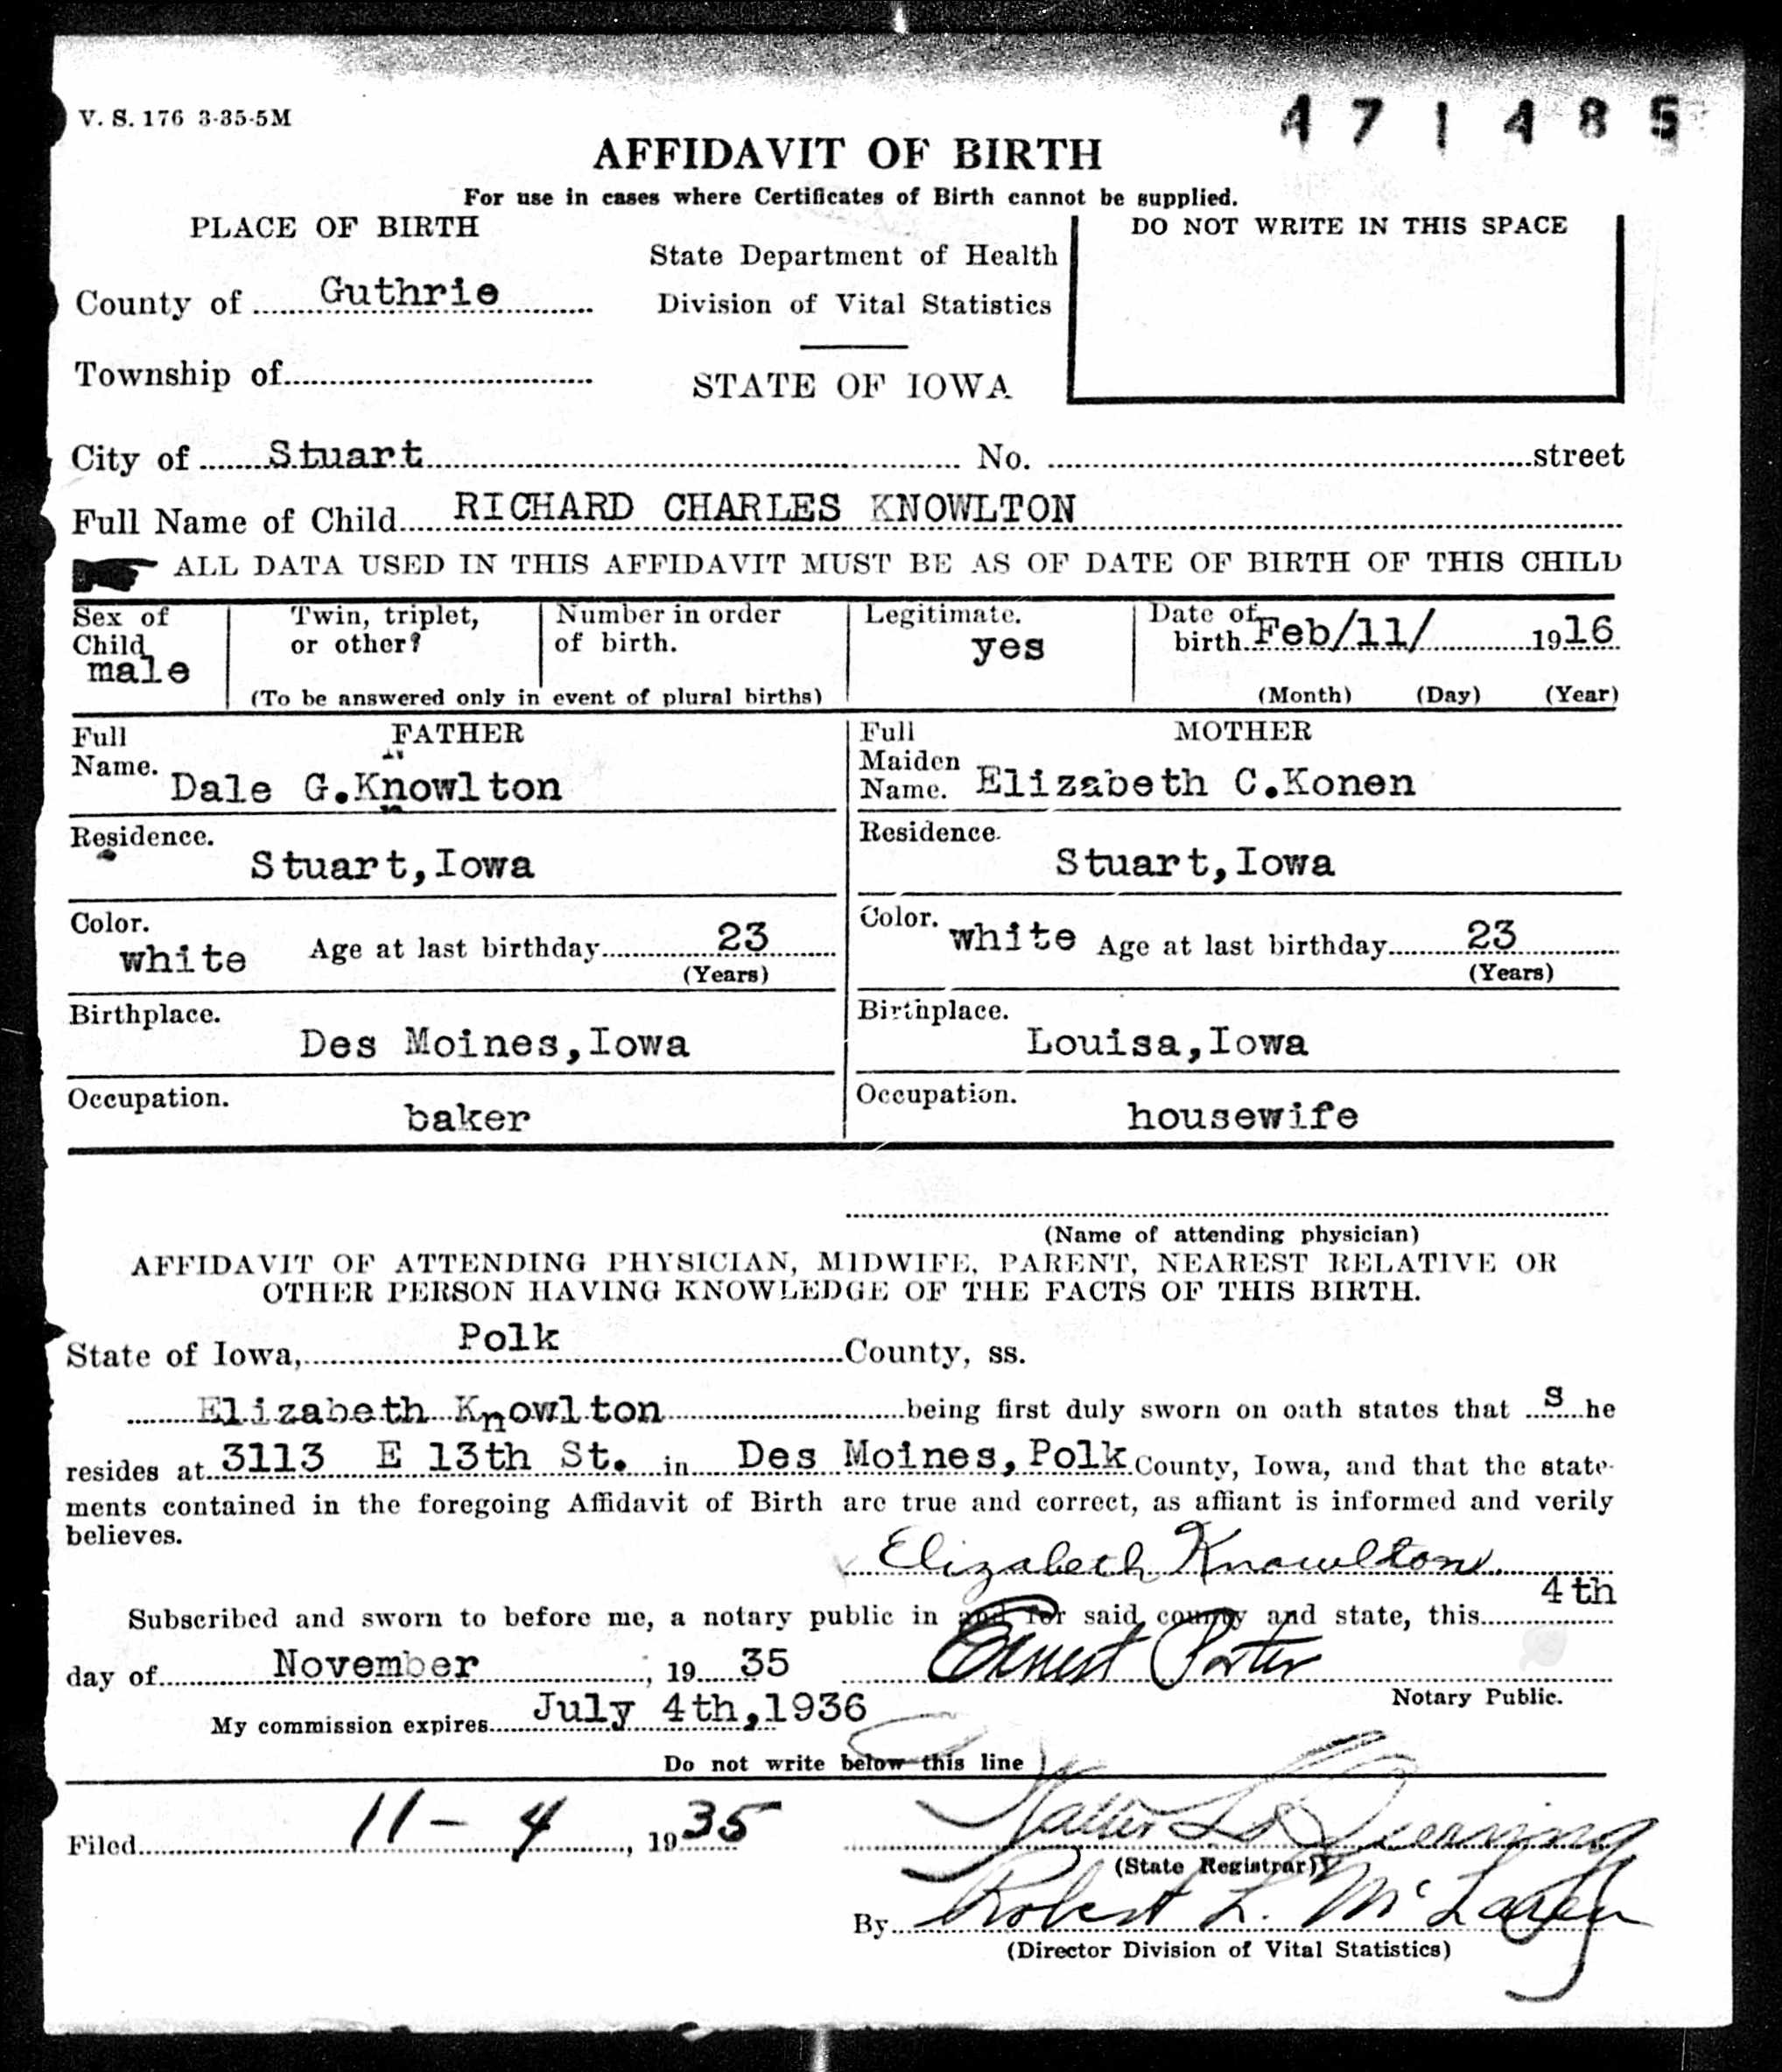 V. S. 176 3-35-5M
471485
AFFIDAVIT OF BIRTH
For use in cases where Certificates of Birth cannot be supplied.
PLACE OF BIRTH
State Department of Health
Division of Vital Statistics
STATE OF IOWA
DO NOT WRITE IN THIS SPACE
County of Guthrie
Township of
City of Stuart No. street
Full Name of Child RICHARD CHARLES KNOWLTON
ALL DATA USED IN THIS AFFIDAVIT MUST BE AS OF DATE OF BIRTH OF THIS CHILD
Sex of Child male
Twin, triplet, or other?
Number in order of birth.
(To be answered only in event of plural births)
Legitimate. yes
Date of birth Feb/11/ 1916
(Month) (Day) (Year)
FATHER
Full Name. Dale G.Knowlton
Residence. Stuart,Iowa
Color. white Age at last birthday 23
(Years)
Birthplace. Des Moines,Iowa
Occupation. baker
MOTHER
Full Maiden Name. Elizabeth C.Konen
Residence. Stuart,Iowa
Color. white Age at last birthday 23
(Years)
Birthplace. Louisa,Iowa
Occupation. housewife
(Name of attending physician)
AFFIDAVIT OF ATTENDING PHYSICIAN, MIDWIFE, PARENT, NEAREST RELATIVE OR
OTHER PERSON HAVING KNOWLEDGE OF THE FACTS OF THIS BIRTH.
State of Iowa, Polk County, ss.
Elizabeth Knowlton being first duly sworn on oath states that S he
resides at 3113 E 13th St. in Des Moines,Polk County, Iowa, and that the state-
ments contained in the foregoing Affidavit of Birth are true and correct, as affiant is informed and verily
believes.
Elizabeth Knowlton
Subscribed and sworn to before me, a notary public in and for said county and state, this 4th
day of November, 19 35 Ernest Porter
Notary Public.
My commission expires July 4th,1936
Do not write below this line
Filed 11-4, 1935
Walter L.
(State Registrar)
By Robert L.
(Director Division of Vital Statistics)